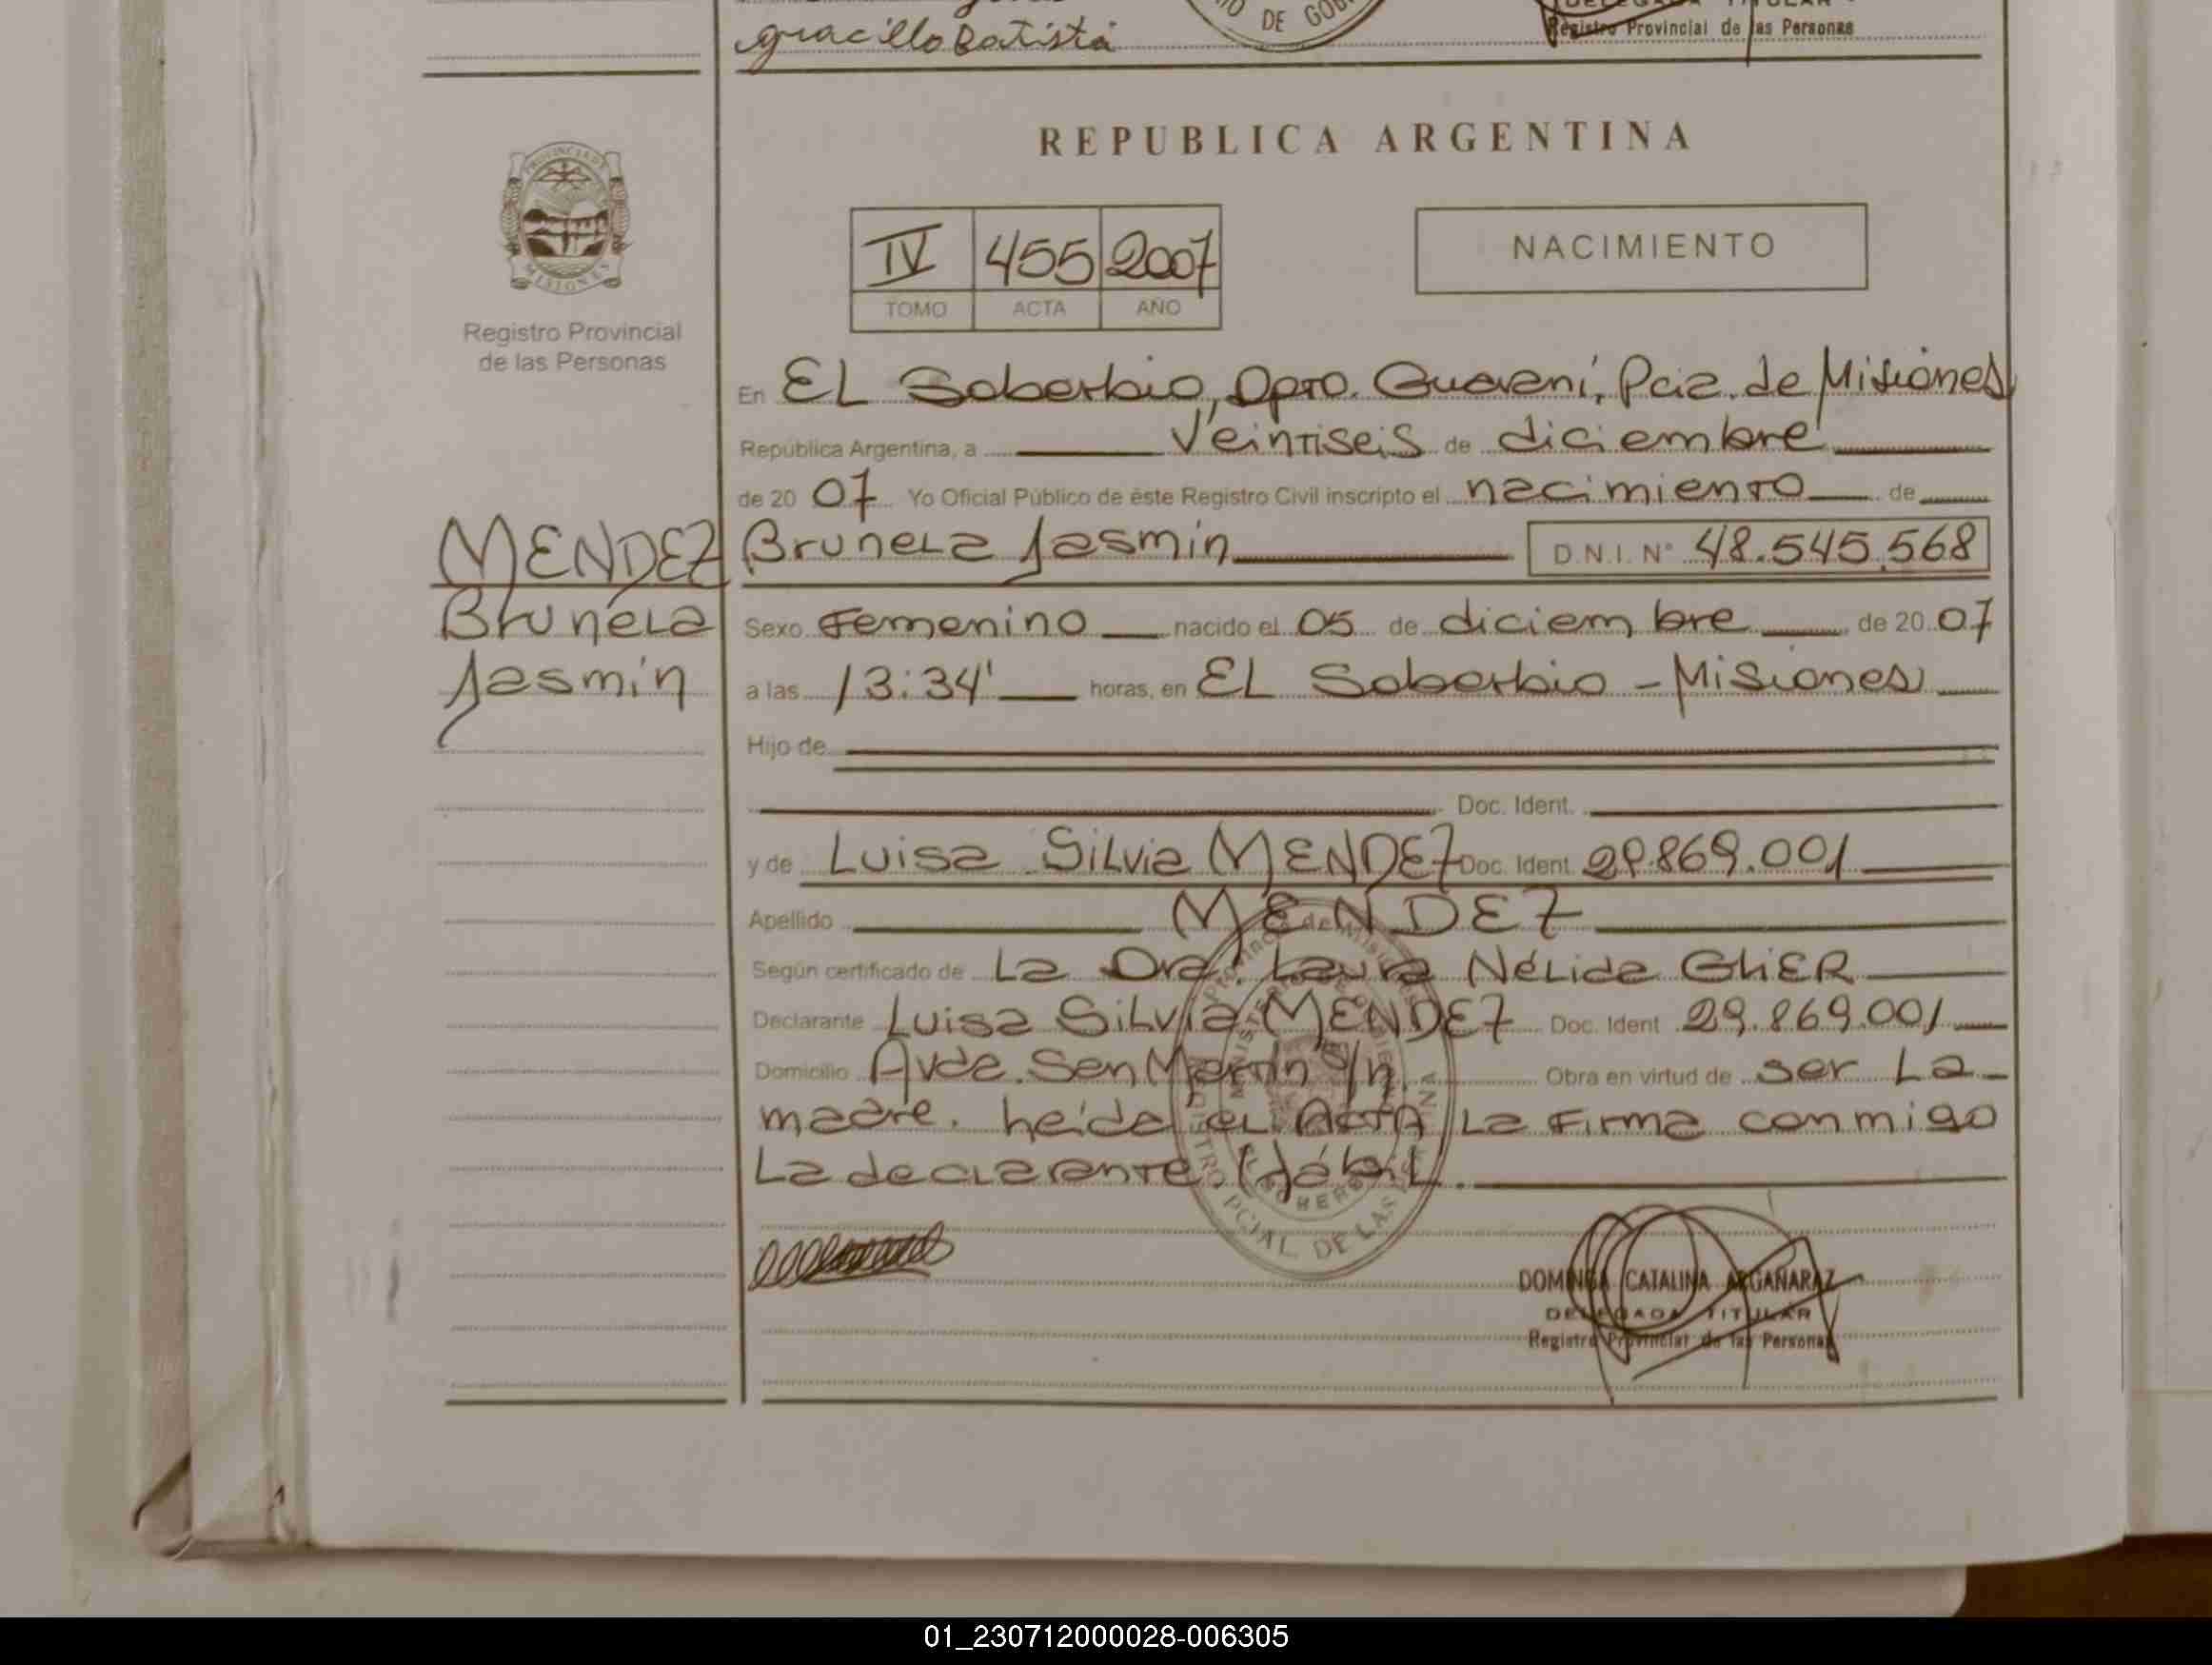 graciello Batista
DE GOB
DELEGADA TITULAR
Registro Provincial de las Personas
PROVINCIA DE
MISIONES
Registro Provincial
de las Personas
REPUBLICA ARGENTINA
IV 455 2007
TOMO ACTA AÑO
NACIMIENTO
En EL Soberbio, Dpto. Guaraní, Pcia. de Misiones
República Argentina, a Veintiseis de diciembre
de 20 07 Yo Oficial Público de éste Registro Civil inscripto el nacimiento de
MENDEZ
Brunela
Jasmín
Brunela Jasmín D.N.I. N° 48.545.568
Sexo Femenino nacido el 05 de diciembre de 20 07
a las 13:34' horas, en EL Soberbio - Misiones
Hijo de
Doc. Ident.
y de Luisa Silvia MENDEZ Doc. Ident. 29.869.001
Apellido MENDEZ
Según certificado de La Dra. Laura Nélida GhiER
Declarante Luisa Silvia MENDEZ Doc. Ident 29.869.001
Domicilio Avda. San Martín s/n. Obra en virtud de ser La
madre. heída el ACTA La Firma conmigo
La declarante. Hábil.
PCIAL DE LAS
DOMINGA CATALINA ARGAÑARAZ
DELEGADA TITULAR
Registro Provincial de las Personas
01_230712000028-006305